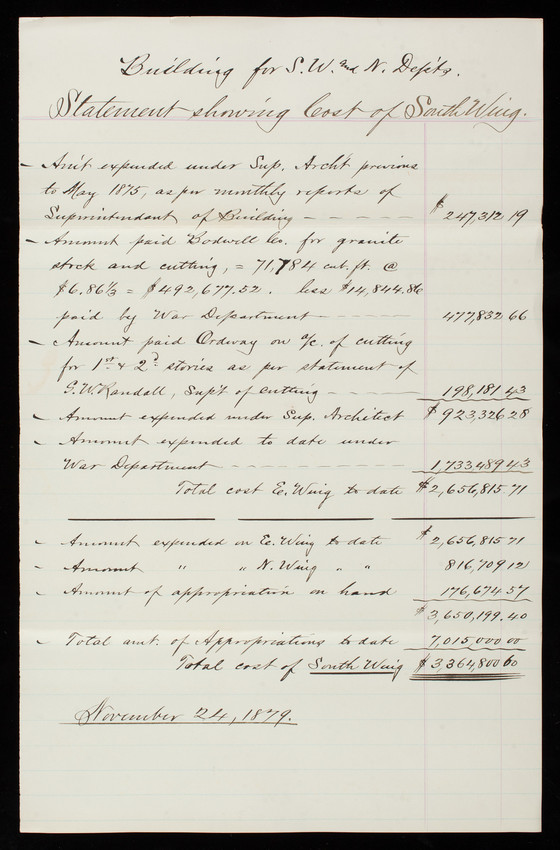 Building for S. W. and N. Dep'ts.
Statement showing Cost of South Wing.
— Am't expended under Sup. Arch't previous
to May 1875, as per monthly reports of
Superintendant of Building — — — — $ 247,312 19
— Amount paid Bodwell Co. for granite
stock and cutting, = 71,784 cub. ft. @
$6.86⅓ = $492,677.52. less $14,844.86
paid by War Department — — — — 477,832 66
— Amount paid Ordway on a/c. of cutting
for 1st & 2d stories as per statement of
G. W. Randall, Sup't of cutting — — — — 198,181 43
— Amount expended under Sup. Architect $ 923,326 28
— Amount expended to date under
War Department — — — — 1,733,489 43
Total cost E. Wing to date $2,656,815.71
— Amount expended on E. Wing to date $2,656,815 71
— Amount " " N. Wing " " 816,709 12
— Amount of appropriation on hand 176,674 57
$3,650,199.40
— Total amt. of Appropriations to date 7,015,000 00
Total cost of South Wing $3,364,800 60
November 24, 1879.